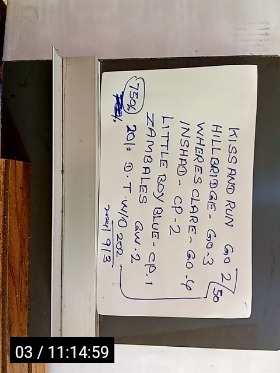 KISS AND RUN GO 2/50
HILLBRIDGE - GO.3
WHERES CLARE - GO.4
INSHAD - CP.2
LITTLE BOY BLUE - CP.1
ZAMBALES GW.2
20/. D.T W/O 202
750/
03 / 11:14:59